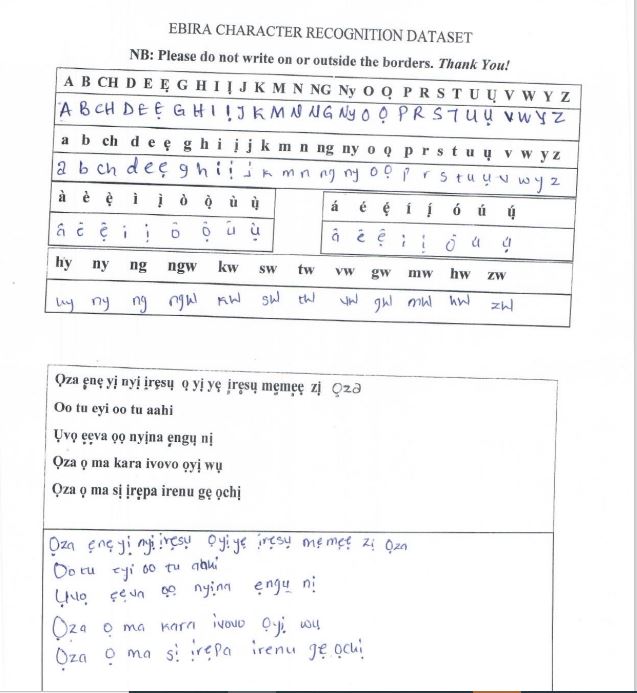 EBIRA CHARACTER RECOGNITION DATASET
NB: Please do not write on or outside the borders. Thank You!
A B CH D E Ẹ G H I Ị J K M N NG Ny O Ọ P R S T U Ụ V W Y Z
A B CH D E Ẹ G H I Ị J K M N NG Ny O Ọ P R S T U Ụ V W Y Z
a b ch d e ẹ g h i ị j k m n ng ny o ọ p r s t u ụ v w y z
a b ch d e ẹ g h i ị j k m n ng ny o ọ p r s t u ụ v w y z
à è ẹ̀ ì ị̀ ò ọ̀ ù ụ̀
á é ẹ́ í ị́ ó ú ụ́
hy ny ng ngw kw sw tw vw gw mw hw zw
hy ny ng ngw kw sw tw vw gw mw hw zw
Ọza ẹnẹ yị nyị ịrẹsụ ọ yị yẹ ịrẹsụ mẹmẹẹ zị Ọza
Oo tu eyi oo tu aahi
Ụvọ ẹẹva ọọ nyịna ẹngụ nị
Ọza ọ ma kara ivovo ọyị wụ
Ọza ọ ma sị ịrẹpa irenu gẹ ọchị
Ọza ẹnẹ yị nyị ịrẹsụ Ọyị yẹ ịrẹsụ mẹmẹẹ zị Ọza
Oo tu eyi oo tu aahi
Ụvọ ẹẹva ọọ nyịna ẹngụ nị
Ọza ọ ma kara ivovo Ọyị wụ
Ọza Ọ ma sị ịrẹpa irenu gẹ ọchị